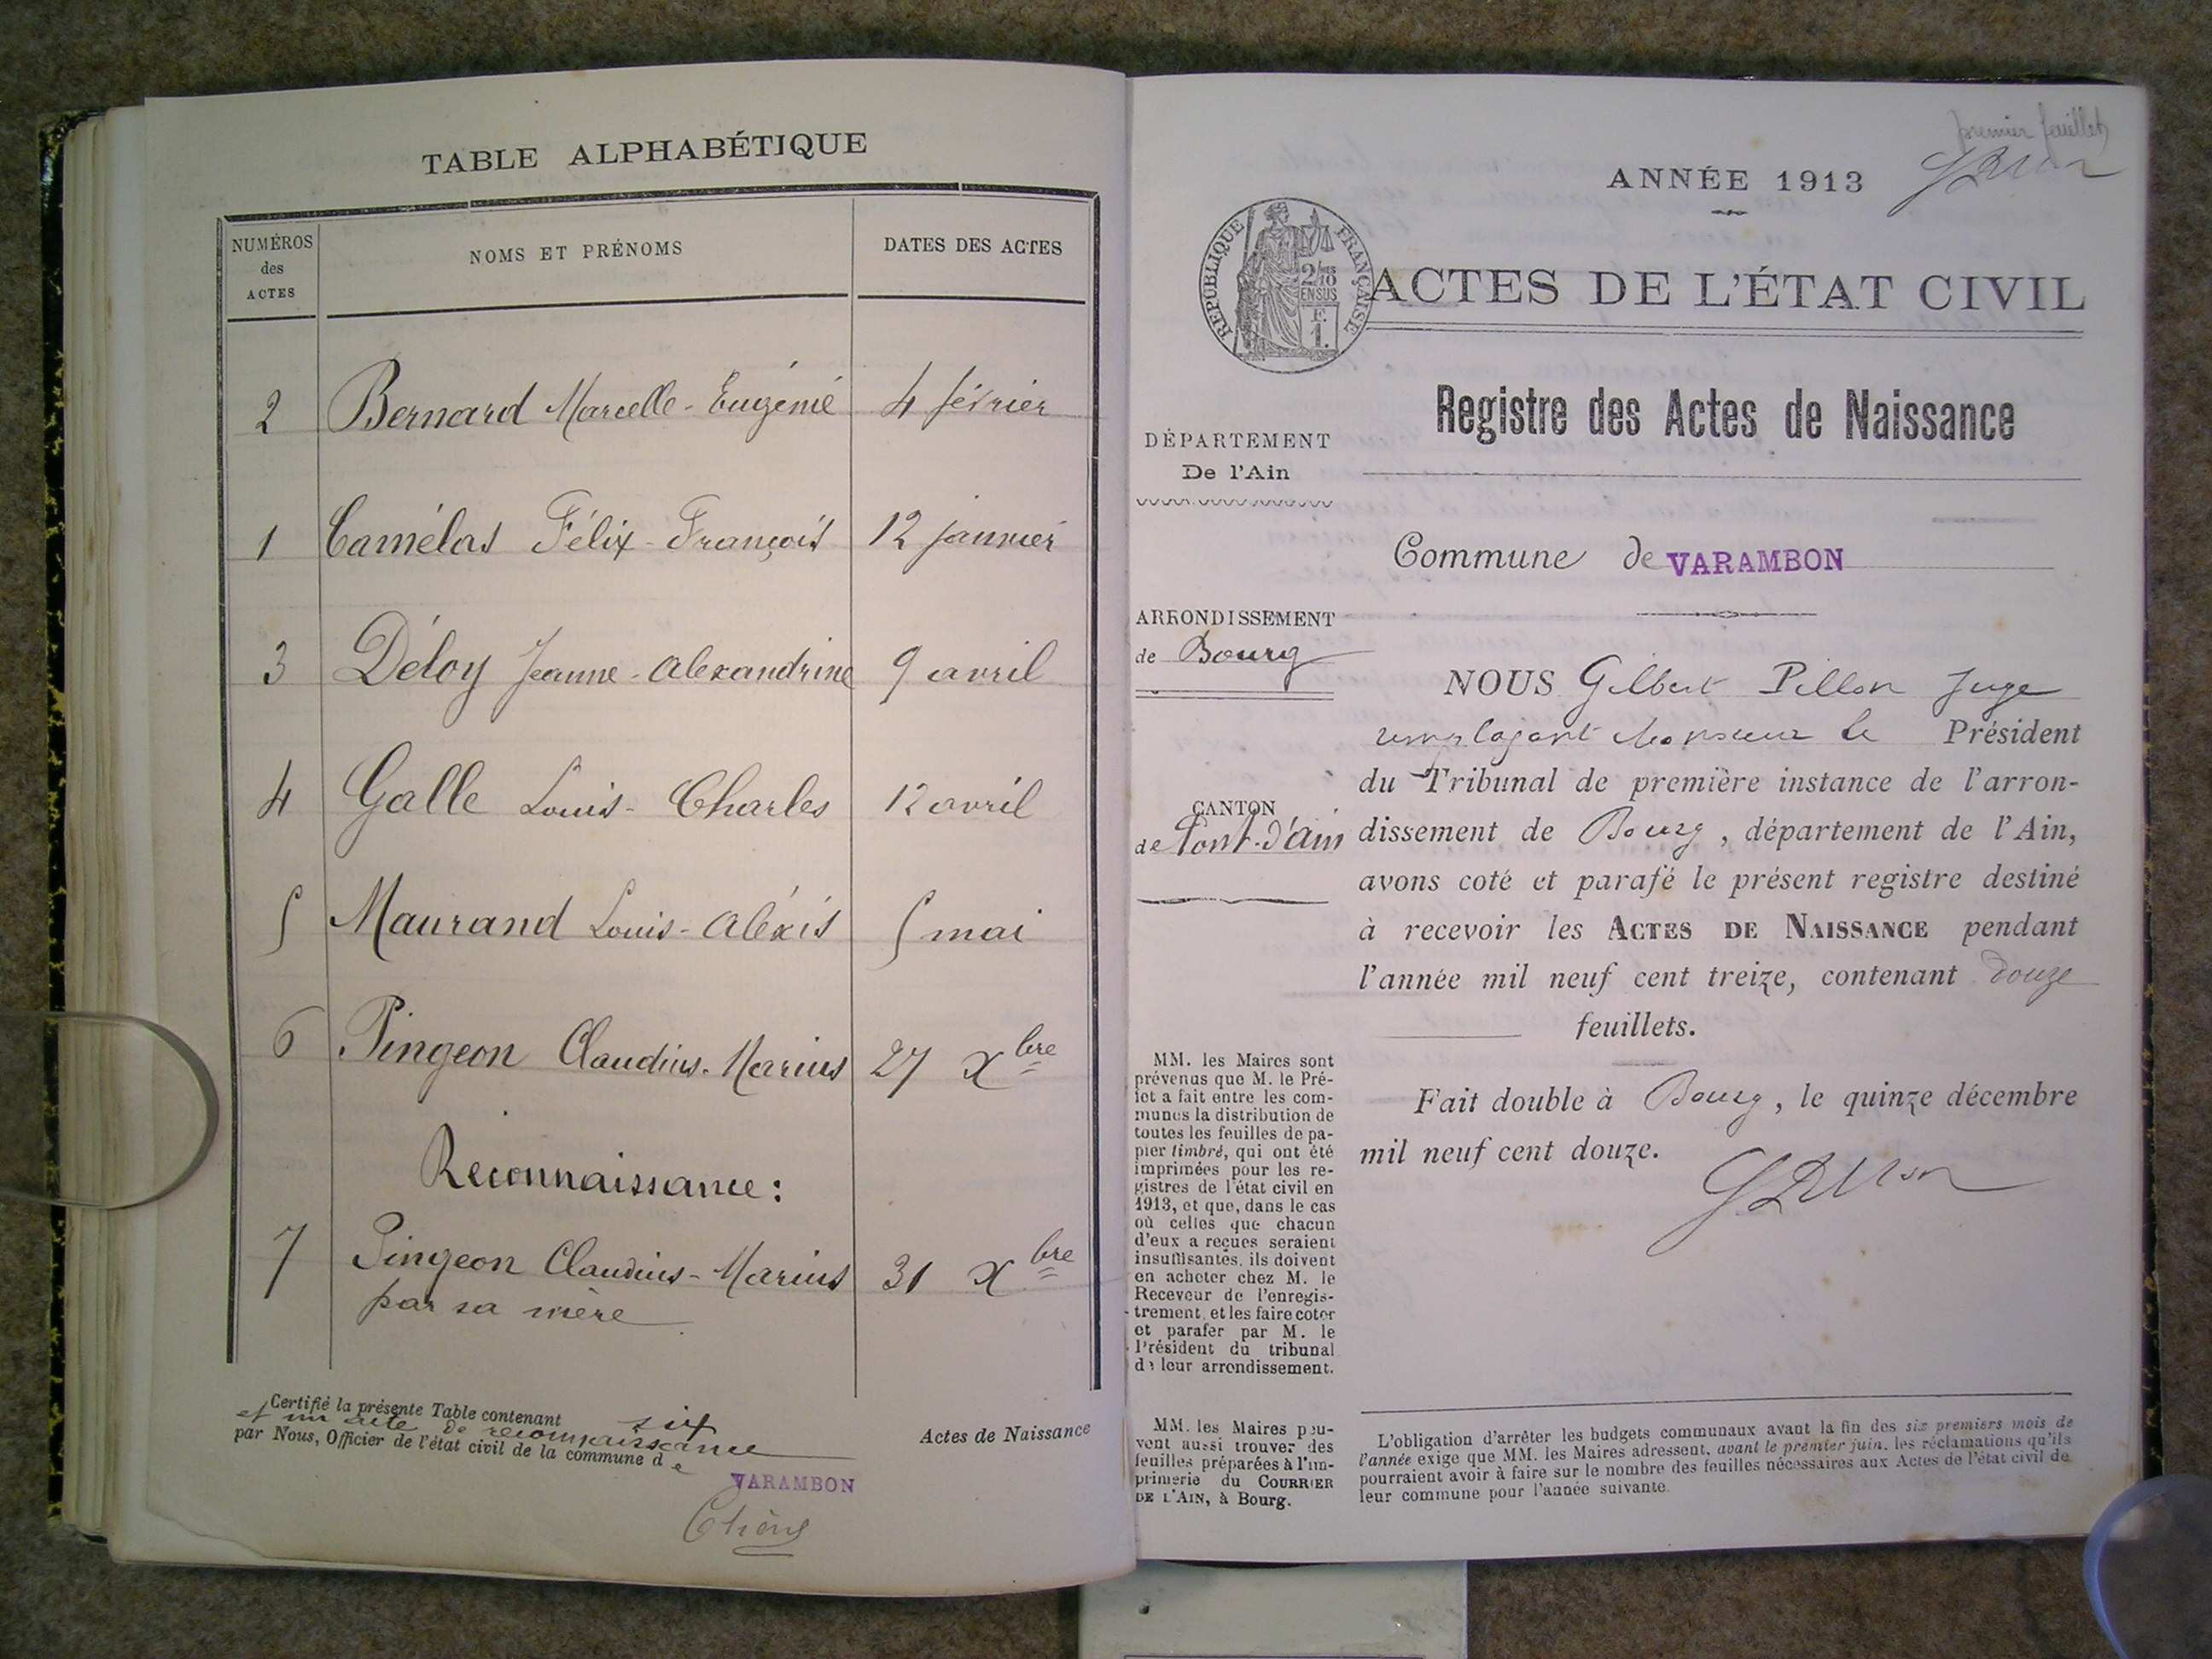 TABLE ALPHABÉTIQUE
NUMÉROS
des
ACTES
NOMS ET PRÉNOMS
DATES DES ACTES
2 Bernard Marcelle-Eugénie 4 février
1 Camélas Félix-François 12 janvier
3 Déloy Jeanne-Alexandrine 9 avril
4 Galle Louis-Charles 12 avril
5 Maurand Louis-Aléxis 5 mai
6 Pingeon Claudius-Marius 27 Xbre
Reconnaissance :
7 Pingeon Claudius-Marius 31 Xbre
par sa mère
Certifié la présente Table contenant six Actes de Naissance
et un acte de reconnaissance
par Nous, Officier de l'état civil de la commune de
VARAMBON
premier feuillet
GPillon
ANNÉE 1913
RÉPUBLIQUE FRANÇAISE
2/10
EN SUS
F.
1.
ACTES DE L'ÉTAT CIVIL
Registre des Actes de Naissance
DÉPARTEMENT
De l'Ain
Commune de VARAMBON
ARRONDISSEMENT
de Bourg
CANTON
de Pont-d'Ain
NOUS Gilbert Pillon Juge
remplaçant Monsieur le Président
du Tribunal de première instance de l'arron-
dissement de Bourg, département de l'Ain,
avons coté et parafé le présent registre destiné
à recevoir les ACTES DE NAISSANCE pendant
l'année mil neuf cent treize, contenant douze
feuillets.
Fait double à Bourg, le quinze décembre
mil neuf cent douze.
GPillon
MM. les Maires sont
prévenus que M. le Pré-
fet a fait entre les com-
munes la distribution de
toutes les feuilles de pa-
pier timbré, qui ont été
imprimées pour les re-
gistres de l'état civil en
1913, et que, dans le cas
où celles que chacun
d'eux a reçues seraient
insuffisantes, ils doivent
en acheter chez M. le
Receveur de l'enregis-
trement, et les faire coter
et parafer par M. le
Président du tribunal
de leur arrondissement.
MM. les Maires peu-
vent aussi trouver des
feuilles préparées à l'im-
primerie du COURRIER
DE L'AIN, à Bourg.
L'obligation d'arrêter les budgets communaux avant la fin des six premiers mois de
l'année exige que MM. les Maires adressent, avant le premier juin, les réclamations qu'ils
pourraient avoir à faire sur le nombre des feuilles nécessaires aux Actes de l'état civil de
leur commune pour l'année suivante.